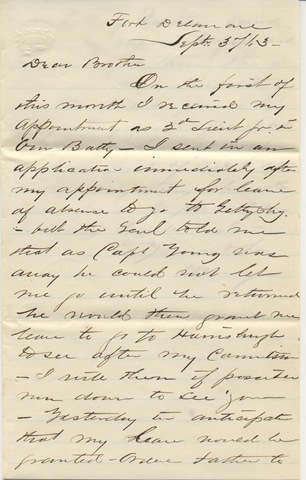 Fort Delaware
Sept. 3d/63-
Dear Brother
On the first of
this month I received my
Appointment as 2d Lieut for
Our Batty - I sent in an
application immediately after
my appointment for leave
of absence to go to Gettysbg.
- but the Genl told me
that as Capt Young was
away he could not let
me go until he returned
he would then grant me
leave to go to Harrisburgh
to see after my Commission
- I will then if possible
run down to see you
- Yesterday in anticipation
that my leave would be
granted - Father to